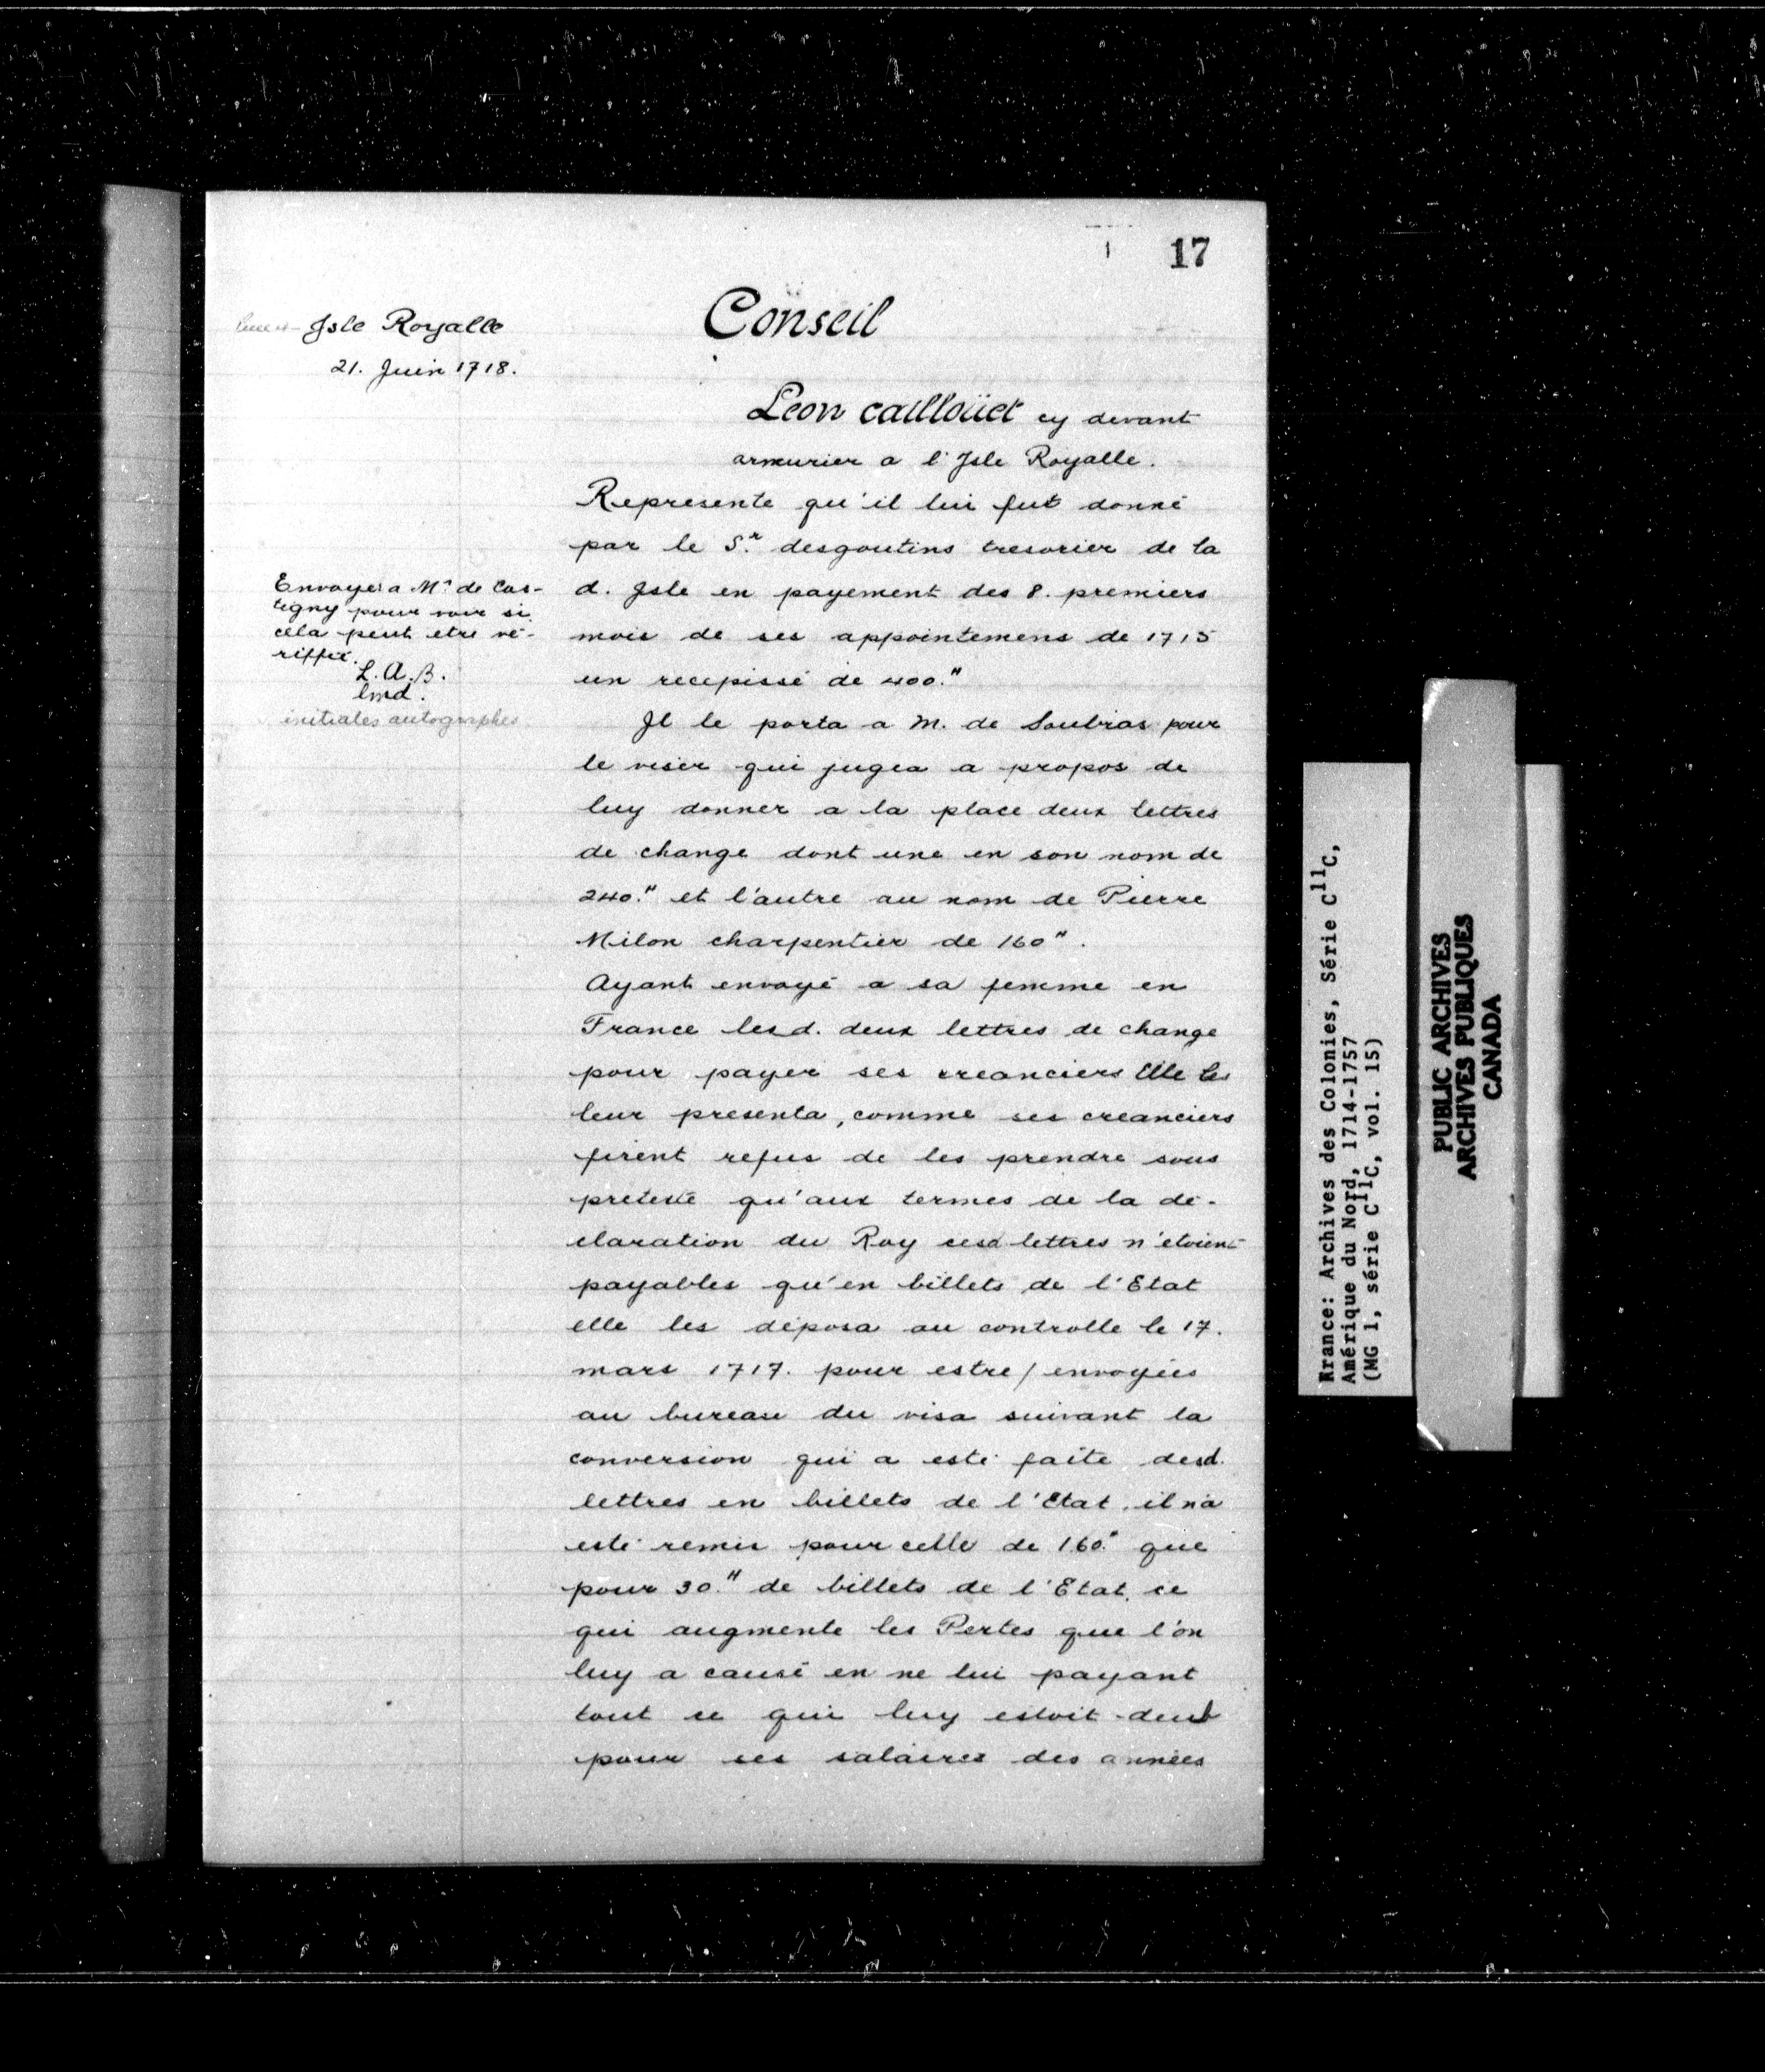 17
Conseil
Isle Royalle
21. Juin 1718.
Leon caillouët cy devant
armurier a l'Isle Royalle.
Represente qu'il lui fut donné
par le S.r desgoutins tresorier de la
d. Isle en payement des 8. premiers
mois de ses appointemens de 1715
un recepissé de 400.tt
Il le porta a M. de Soubras pour
le viser qui jugea a propos de
luy donner a la place deux lettres
de change dont une en son nom de
240.tt et l'autre au nom de Pierre
Milon charpentier de 160tt.
Ayant envoyé a sa femme en
France lesd. deux lettres de change
pour payer ses creanciers Elle les
leur presenta, comme ses creanciers
firent refus de les prendre sous
pretexte qu'aux termes de la de-
claration du Roy cesd lettres n'etoient
payables qu'en billets de l'Etat
elle les déposa au controlle le 17.
mars 1717. pour estre / envoyées
au bureau du visa suivant la
conversion qui a esté faite desd.
lettres en billets de l'Etat, il n'a
esté remis pour celle de 160.tt que
pour 30.tt de billets de l'Etat, ce
qui augmente les Pertes que l'on
luy a causé en ne lui payant
tout ce qui luy estoit deub
pour ses salaires des années
Envoyer a Mr. de Cas-
tigny pour voir si
cela peut etre ve-
riffié.
L. A. B.
lmd.
initiales autographes
France: Archives des Colonies, Série C11C,
Amérique du Nord, 1714-1757
(MG 1, série C11C, vol. 15)
PUBLIC ARCHIVES
ARCHIVES PUBLIQUES
CANADA